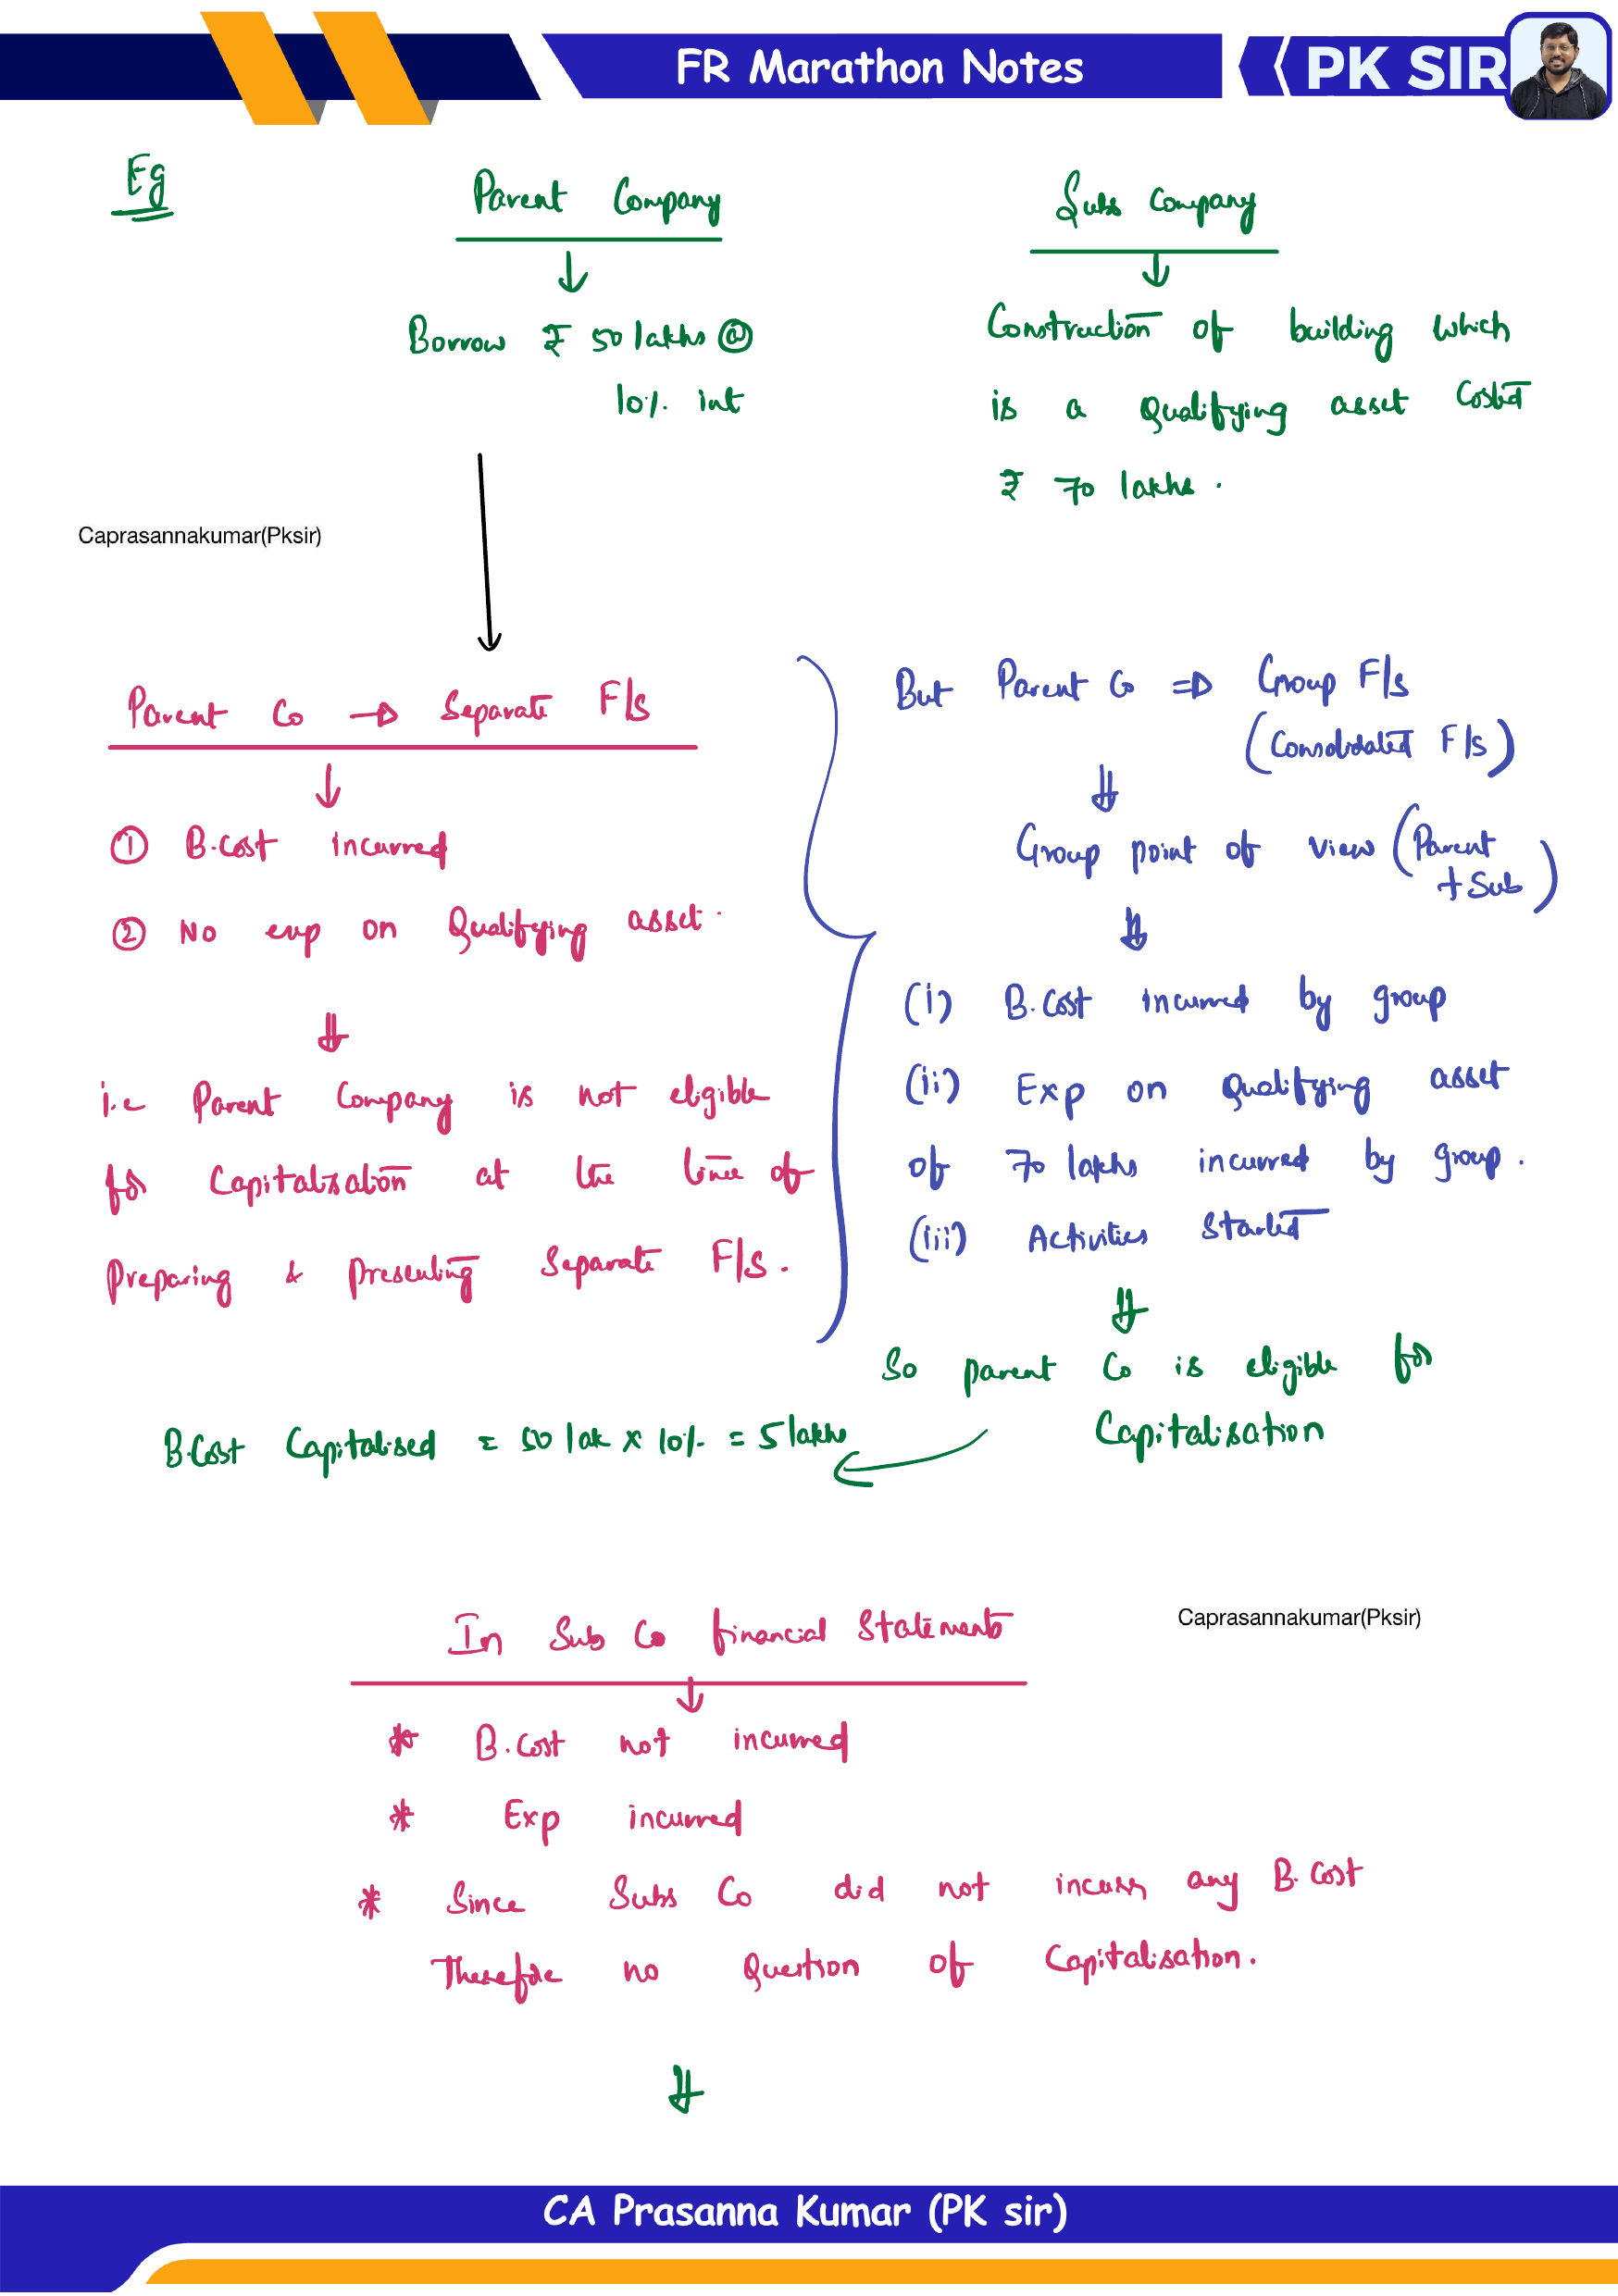 FR Marathon Notes
PK SIR
Eg
Parent Company
Borrow ₹ 50 lakhs @
10% int
Subs Company
Construction of building which
is a Qualifying asset Costed
₹ 70 lakhs.
Caprasannakumar(Pksir)
Parent Co → Separate F/s
① B.Cost incurred
② No exp on Qualifying asset.
i.e Parent Company is not eligible
for Capitalisation at the time of
Preparing & Presenting Separate F/s.
But Parent Co ⇒ Group F/s
(Consolidated F/s)
Group point of view (Parent
+ Sub)
(i) B.Cost incurred by group
(ii) Exp on Qualifying asset
of 70 lakhs incurred by group.
(iii) Activities Started
So parent Co is eligible for
Capitalisation
B.Cost Capitalised = 50 lak x 10% = 5 lakhs
In Sub Co financial Statements
Caprasannakumar(Pksir)
* B.Cost not incurred
* Exp incurred
* Since Subs Co did not incurr any B.Cost
Therefore no Question of Capitalisation.
CA Prasanna Kumar (PK sir)